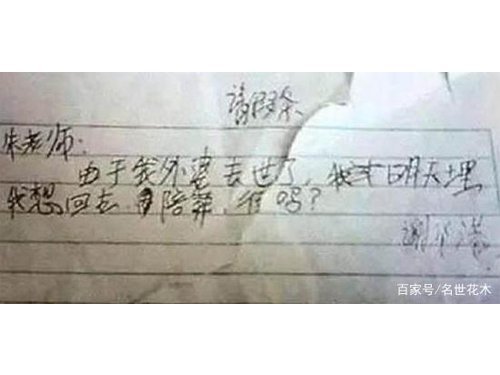 请假条
朱老师:
由于我外婆去世了,我 明天埋
我想回去 陪葬,行吗?
谢
百家号/名世花木